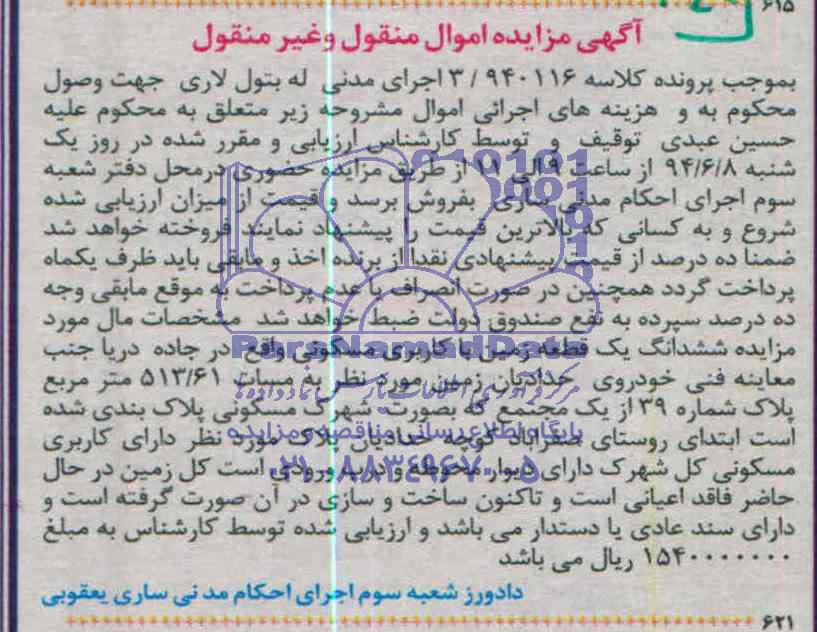 ۶۱۵
آگهی مزایده اموال منقول وغیر منقول
بموجب پرونده کلاسه ۹۴۰۱۱۶ / ۳ اجرای مدنی له بتول لاری جهت وصول
محکوم به و هزینه های اجرائی اموال مشروحه زیر متعلق به محکوم علیه
حسین عبدی توقیف و توسط کارشناس ارزیابی و مقرر شده در روز یک
شنبه ۹۴/۶/۸ از ساعت ۹ الی ۱۱ از طریق مزایده حضوری درمحل دفتر شعبه
سوم اجرای احکام مدنی ساری بفروش برسد و قیمت از میزان ارزیابی شده
شروع و به کسانی که بالاترین قیمت را پیشنهاد نمایند فروخته خواهد شد
ضمنا ده درصد از قیمت پیشنهادی نقدا از برنده اخذ و مابقی باید ظرف یکماه
پرداخت گردد همچنین در صورت انصراف یا عدم پرداخت به موقع مابقی وجه
ده درصد سپرده به نفع صندوق دولت ضبط خواهد شد مشخصات مال مورد
مزایده ششدانگ یک قطعه زمین با کاربری مسکونی واقع در جاده دریا جنب
معاینه فنی خودروی حدادیان زمین مورد نظر به مسات ۵۱۳/۶۱ متر مربع
پلاک شماره ۳۹ از یک مجتمع که بصورت شهرک مسکونی پلاک بندی شده
است ابتدای روستای صفراباد کوچه حدادیان پلاک مورد نظر دارای کاربری
مسکونی کل شهرک دارای دیوار محوطه و درب ورودی است کل زمین در حال
حاضر فاقد اعیانی است و تاکنون ساخت و سازی در آن صورت گرفته است و
دارای سند عادی یا دستدار می باشد و ارزیابی شده توسط کارشناس به مبلغ
۱۵۴۰۰۰۰۰۰۰ ریال می باشد
دادورز شعبه سوم اجرای احکام مد نی ساری یعقوبی
۶۲۱
ParsNamadData
مرکز فرآوری اطلاعات پارس نماد داده ها
پایگاه اطلاع رسانی مناقصه و مزایده
۰۲۱-۸۸۳۴۹۶۷۰-۵